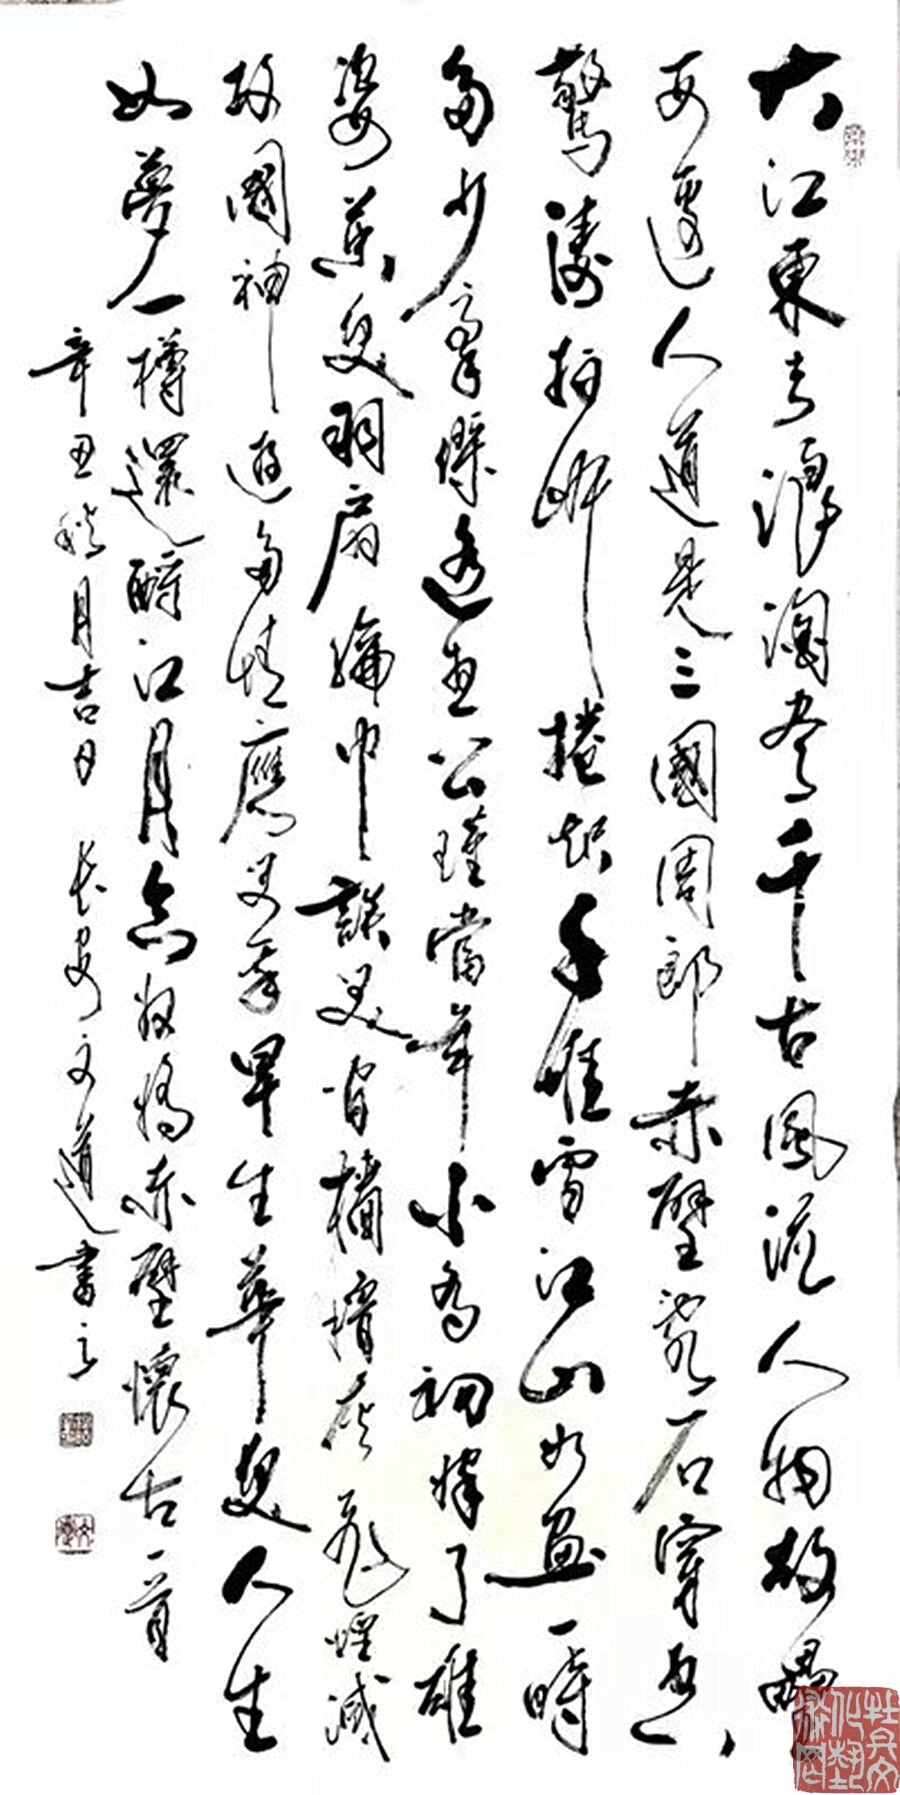 大江東去浪淘盡千古風流人物故壘
西邊人道是三國周郎赤壁亂石穿空
驚濤拍岸捲起千堆雪江山如畫一時
多少豪傑遙想公瑾當年小喬初嫁了雄
姿英發羽扇綸巾談笑間檣櫓灰飛煙滅
故國神遊多情應笑我早生華髮人生
如夢一樽還酹江月念奴嬌赤壁懷古一首
辛丑月吉日 長安文道書之